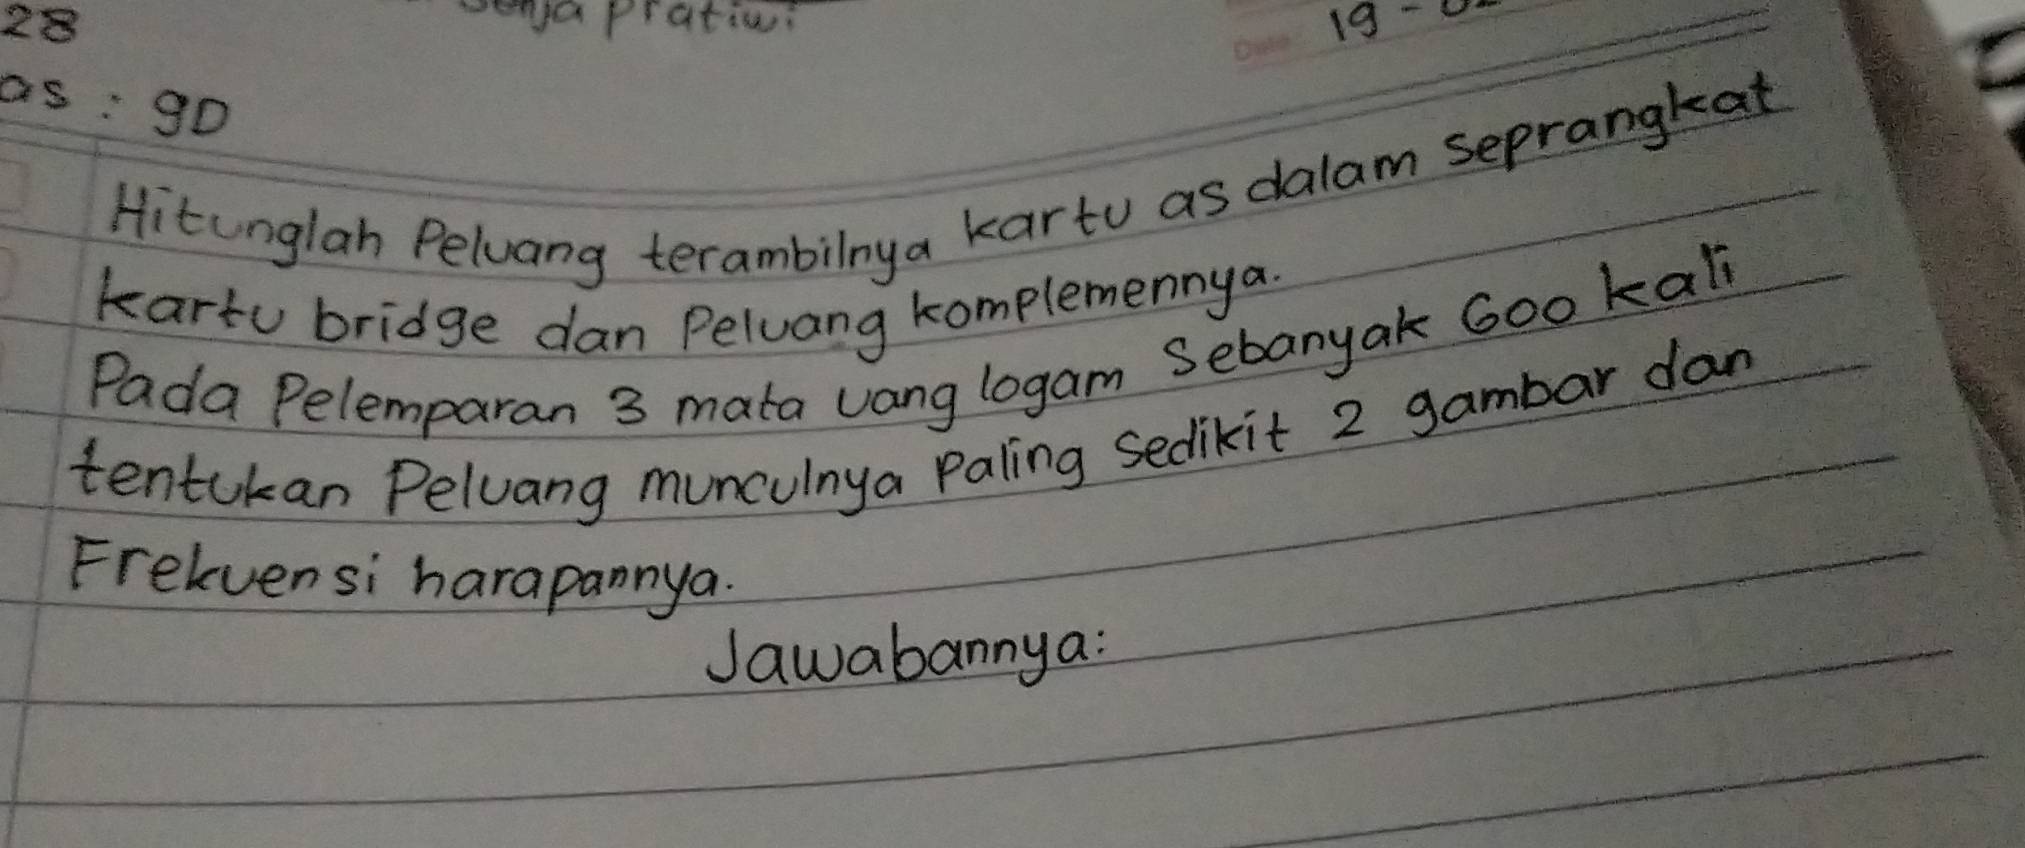 28
Pratiwi
19 -
as : 9D
Hitunglah Peluang terambilnya kartu as dalam seprangkat
kartu bridge dan Peluang komplemennya.
Pada Pelemparan 3 mata uang logam Sebanyak 600 kali
tentukan Peluang munculnya Paling sedikit 2 gambar dan
Frekuensi harapannya.
Jawabannya: